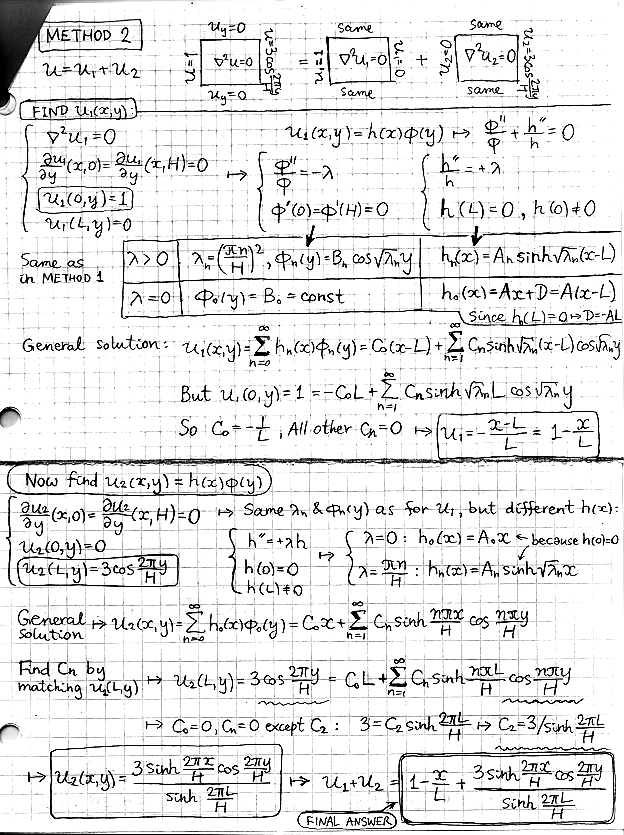 METHOD 2
u = u₁ + u₂
u_y=0
u=1
∇²u=0
u=3cos 2πy/H
u_y=0
=
same
u₁=1
∇²u₁=0
u₁=0
same
+
same
u₂=0
∇²u₂=0
u₂=3cos 2πy/H
same
FIND u₁(x,y):
∇²u₁=0
∂u₁/∂y (x,0) = ∂u₁/∂y (x,H)=0
u₁(0,y)=1
u₁(L,y)=0
u₁(x,y)=h(x)ϕ(y) ↦ ϕ''/ϕ + h''/h = 0
↦ ϕ''/ϕ = -λ
ϕ'(0)=ϕ'(H)=0
h''/h = +λ
h(L)=0, h(0)≠0
Same as
in METHOD 1
λ>0 | λₙ=(πn/H)², ϕₙ(y)=Bₙ cos√λₙ y | hₙ(x)=Aₙ sinh√λₙ(x-L)
λ=0 | ϕ₀(y)=B₀=const | h₀(x)=Ax+D=A(x-L)
Since h₁(L)=0↦D=-AL
General solution: u₁(x,y)=∑_{n=0}^∞ hₙ(x)ϕₙ(y)=C₀(x-L)+∑_{n=1}^∞ Cₙsinh√λₙ(x-L)cos√λₙy
But u₁(0,y)=1=-C₀L+∑_{n=1}^∞ Cₙsinh√λₙL cos√λₙy
So C₀=-1/L, All other Cₙ=0 ↦ u₁=-(x-L)/L = 1-x/L
Now find u₂(x,y)=h(x)ϕ(y)
∂u₂/∂y (x,0)=∂u₂/∂y (x,H)=0
u₂(0,y)=0
u₂(L,y)=3cos 2πy/H
↦ Same λₙ & ϕₙ(y) as for u₁, but different h(x):
h''=+λh
h(0)=0
h(L)≠0
↦ λ=0: h₀(x)=A₀x ← because h(0)=0
λ=πn/H: hₙ(x)=Aₙsinh√λₙx
General
solution ↦ u₂(x,y)=∑_{n=0}^∞ h₀(x)ϕ₀(y)=C₀x+∑_{n=1}^∞ Cₙsinh nπx/H cos nπy/H
Find Cₙ by
matching u₂(L,y) ↦ u₂(L,y)=3cos 2πy/H = C₀L+∑_{n=1}^∞ Cₙsinh nπL/H cos nπy/H
↦ C₀=0, Cₙ=0 except C₂: 3=C₂ sinh 2πL/H ↦ C₂=3/sinh 2πL/H
↦ u₂(x,y)= (3 sinh 2πx/H cos 2πy/H)/(sinh 2πL/H) ↦ u₁+u₂ = 1-x/L + (3sinh 2πx/H cos 2πy/H)/(sinh 2πL/H)
FINAL ANSWER